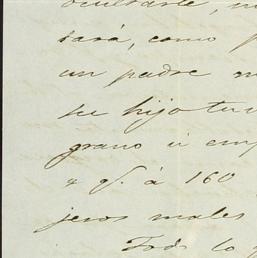 ocultarle, m
tará, como p
un padre m
su hijo tu
grano ú emp
4 qs. á 160
jeros males
Todo lo